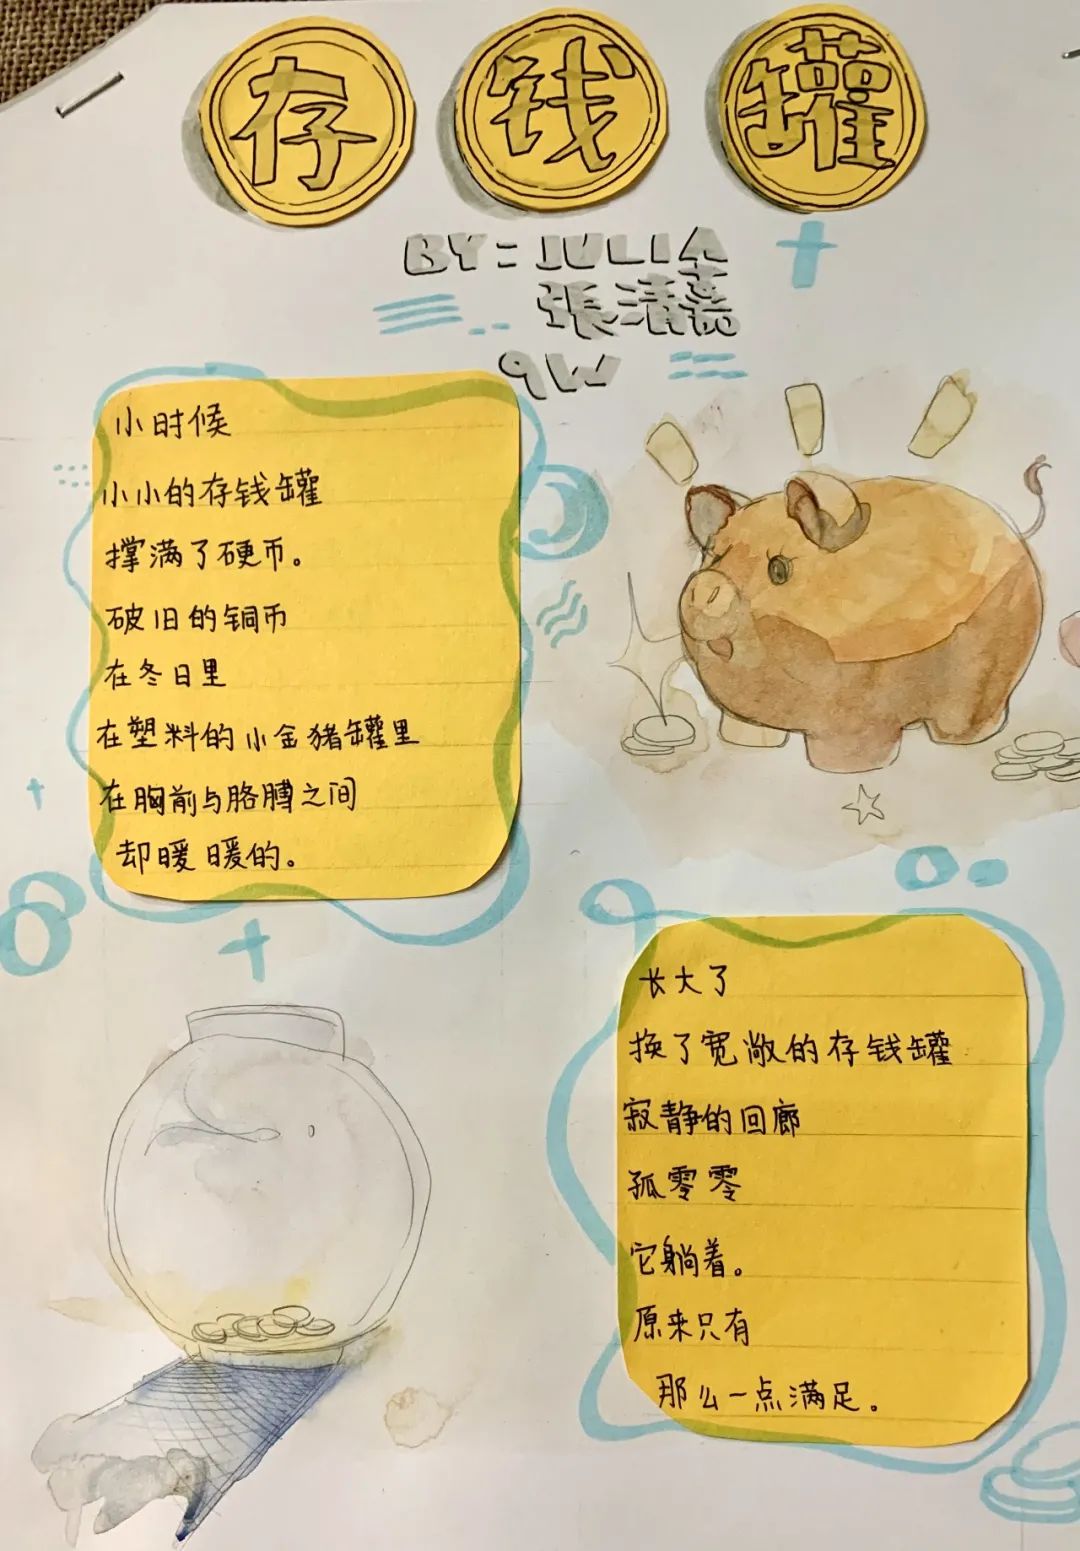 存钱罐
BY:JULIA
張清嘉
9W
小时候
小小的存钱罐
撑满了硬币。
破旧的铜币
在冬日里
在塑料的小金猪罐里
在胸前与胳膊之间
却暖暖的。
长大了
换了宽敞的存钱罐
寂静的回廊
孤零零
它躺着。
原来只有
那么一点满足。